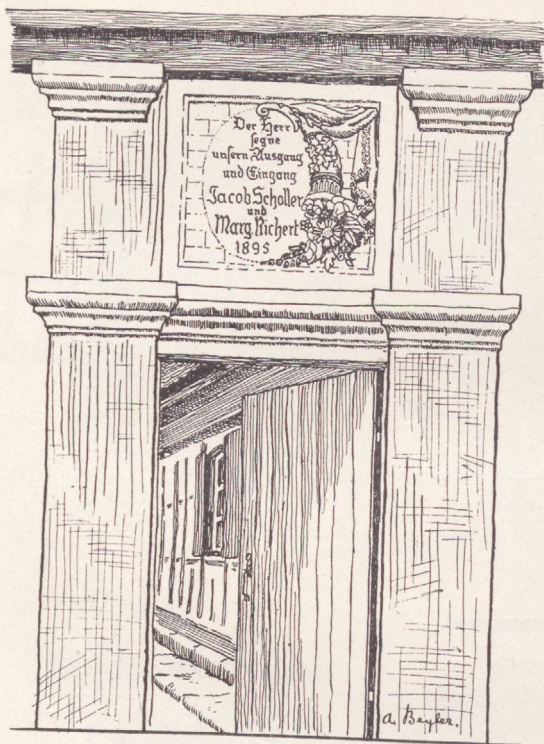 Der Herr
segne
unsern Ausgang
und Eingang
Jacob Scholler
und
Marg. Richert
1895
A. Beyler.